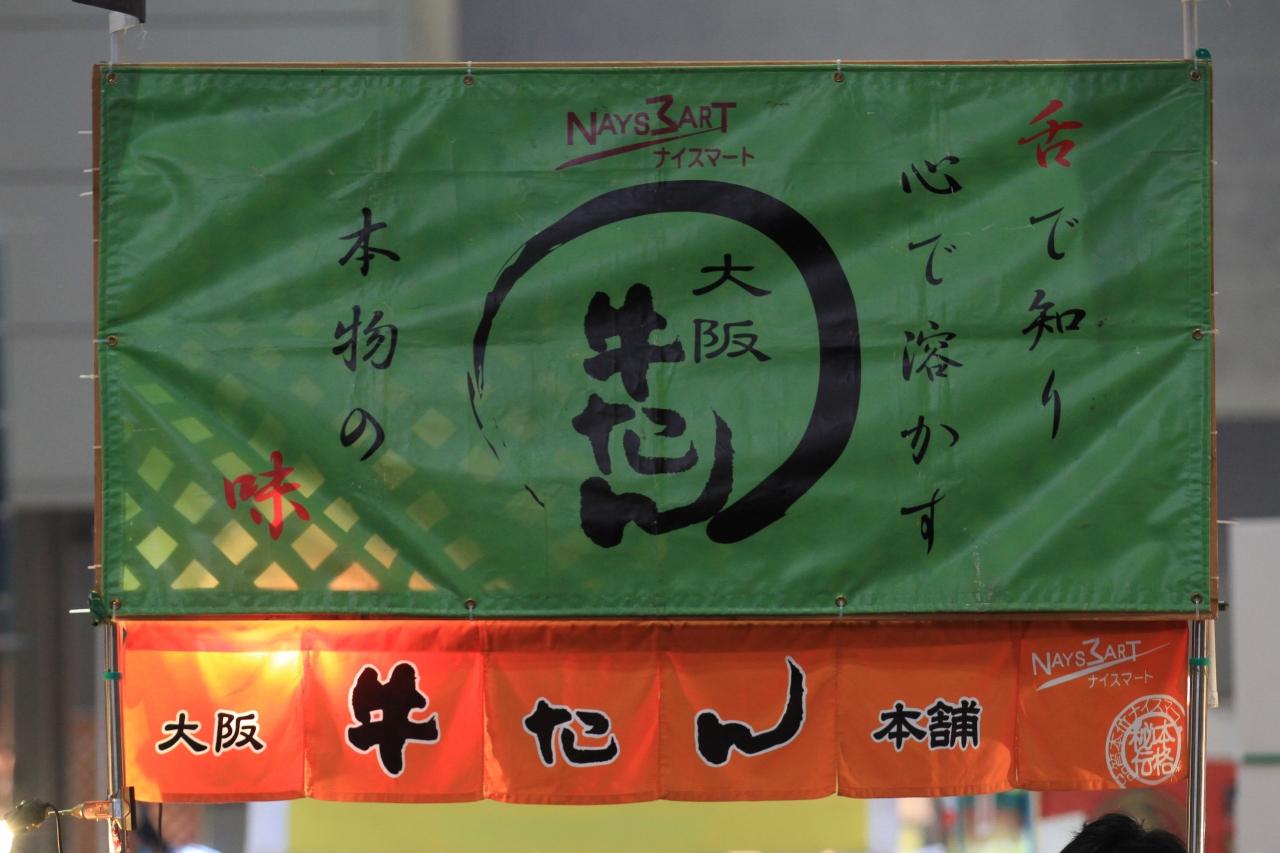 NAYS3ART
ナイスマート
舌で知り
心で溶かす
大阪
牛たん
本物の
味
大阪 牛たん 本舗
NAYS3ART
ナイスマート
本格
秘伝